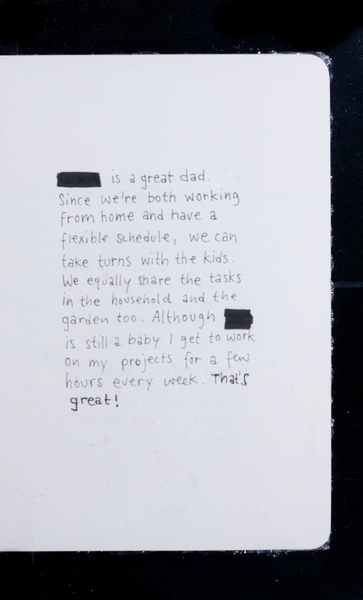 is a great dad.
Since we're both working
from home and have a
flexible schedule, we can
take turns with the kids.
We equally share the tasks
in the household and the
garden too. Although
is still a baby I get to work
on my projects for a few
hours every week. That's
great!